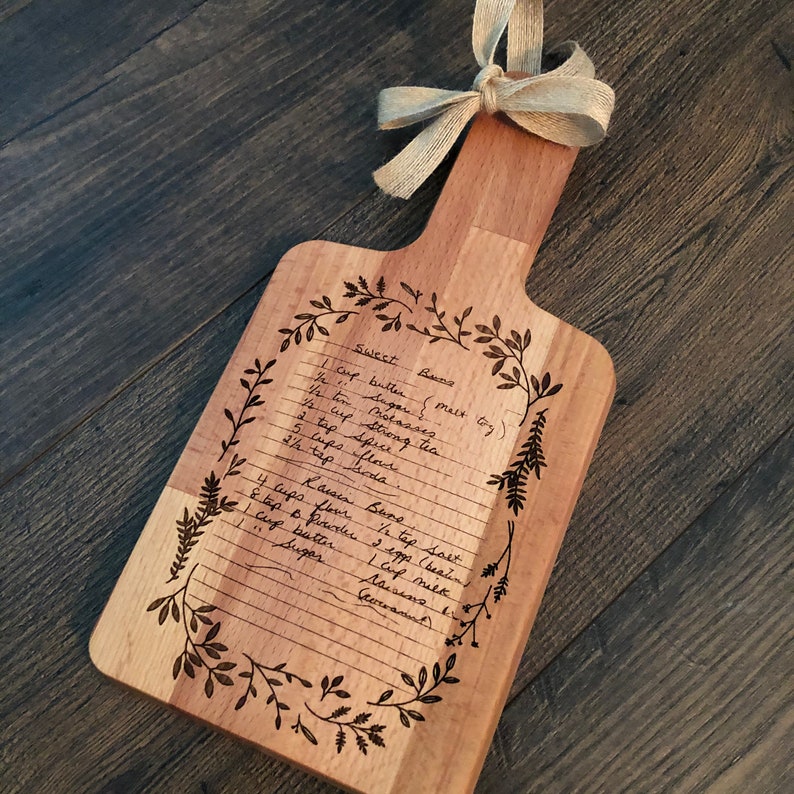 Sweet Buns
1 cup butter (melt tog)
1/2 " Sugar
1/2 tin molasses
1/2 cup strong tea
2 tsp spice
5 cups flour
2 1/2 tsp soda.
Raisin Buns.
4 cups flour 1/2 tsp salt
8 tsp B. Powder 2 eggs (beaten)
1 cup butter 1 cup milk
1 " Sugar Raisins
(currant)